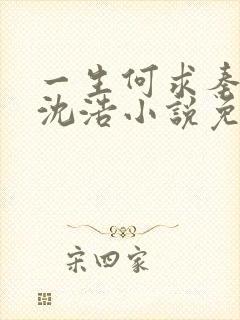 一生何求秦
沈浩小說免
宋四家